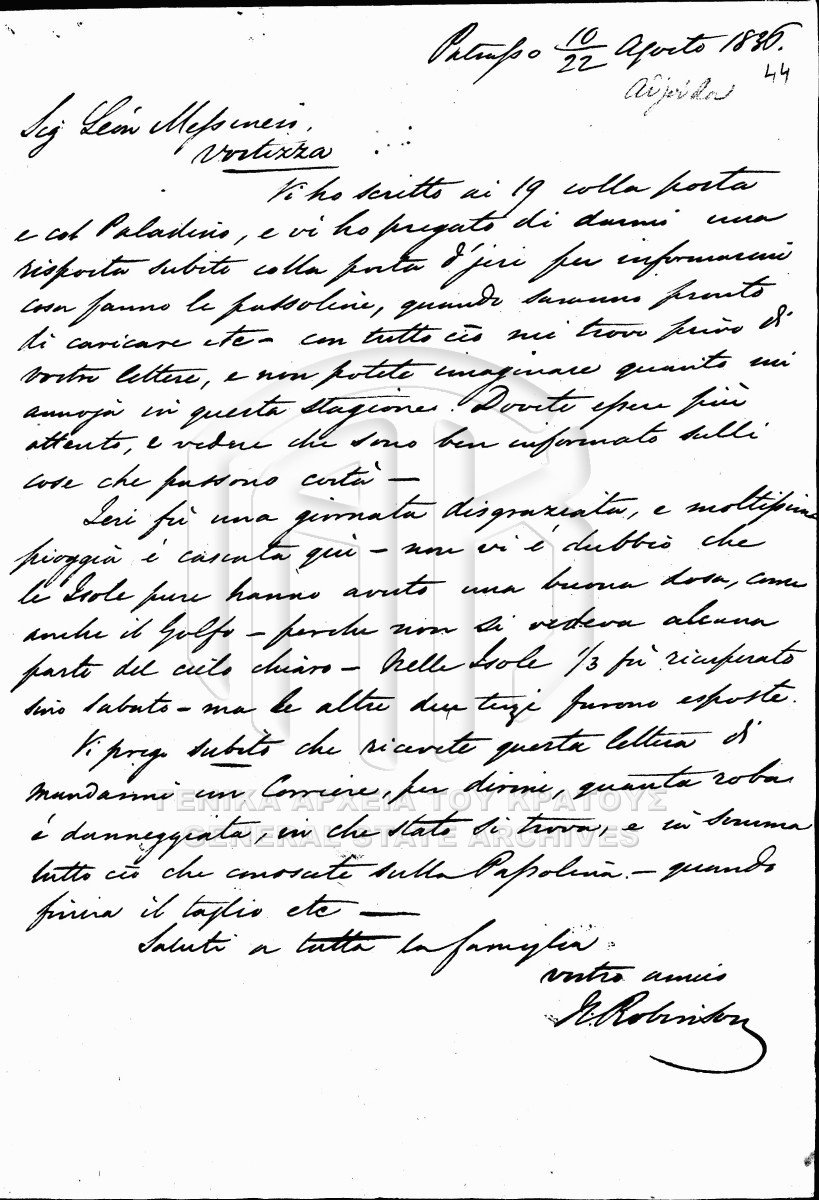 Patrasso 10/22 Agosto 1836.
44
Sig León Messinesi,
Vostizza
Vi ho scritto ai 19 colla posta
e col Paladino, e vi ho pregato di darmi una
risposta subito colla posta d'jeri per informarmi
cosa fanno le passoline, quando saranno pronto
di caricare etc – con tutto ciò mi trovo privo di
vostre lettere, e non potete imaginare quanto mi
annoja in questa stagione. Dovete essere più
attento, e vedere che sono ben informato sulli
cose che passono costà —
Ieri fù una giornata disgraziata, e moltissima
pioggia é cascata quì – non vi é dubbio che
le Isole pure hanno avuto una buona dosa, come
anche il Golfo – perche non si vedeva alcuna
parte del cielo chiaro – Nelle Isole 1/3 fù ricuperato
sino Sabato – ma le altre due terzi furono esposte.
Vi prego subitò che ricevete questa lettera di
mandarmi un Corriere, per dirmi, quanta roba
é danneggiata, in che stato si trova, e in somma
tutto ciò che conoscete sulla Passolina. – quando
finira il taglio etc —
Saluti a tutta la famiglia
vostro amico
Robinson
ΓΕΝΙΚΑ ΑΡΧΕΙΑ ΤΟΥ ΚΡΑΤΟΥΣ
GENERAL STATE ARCHIVES